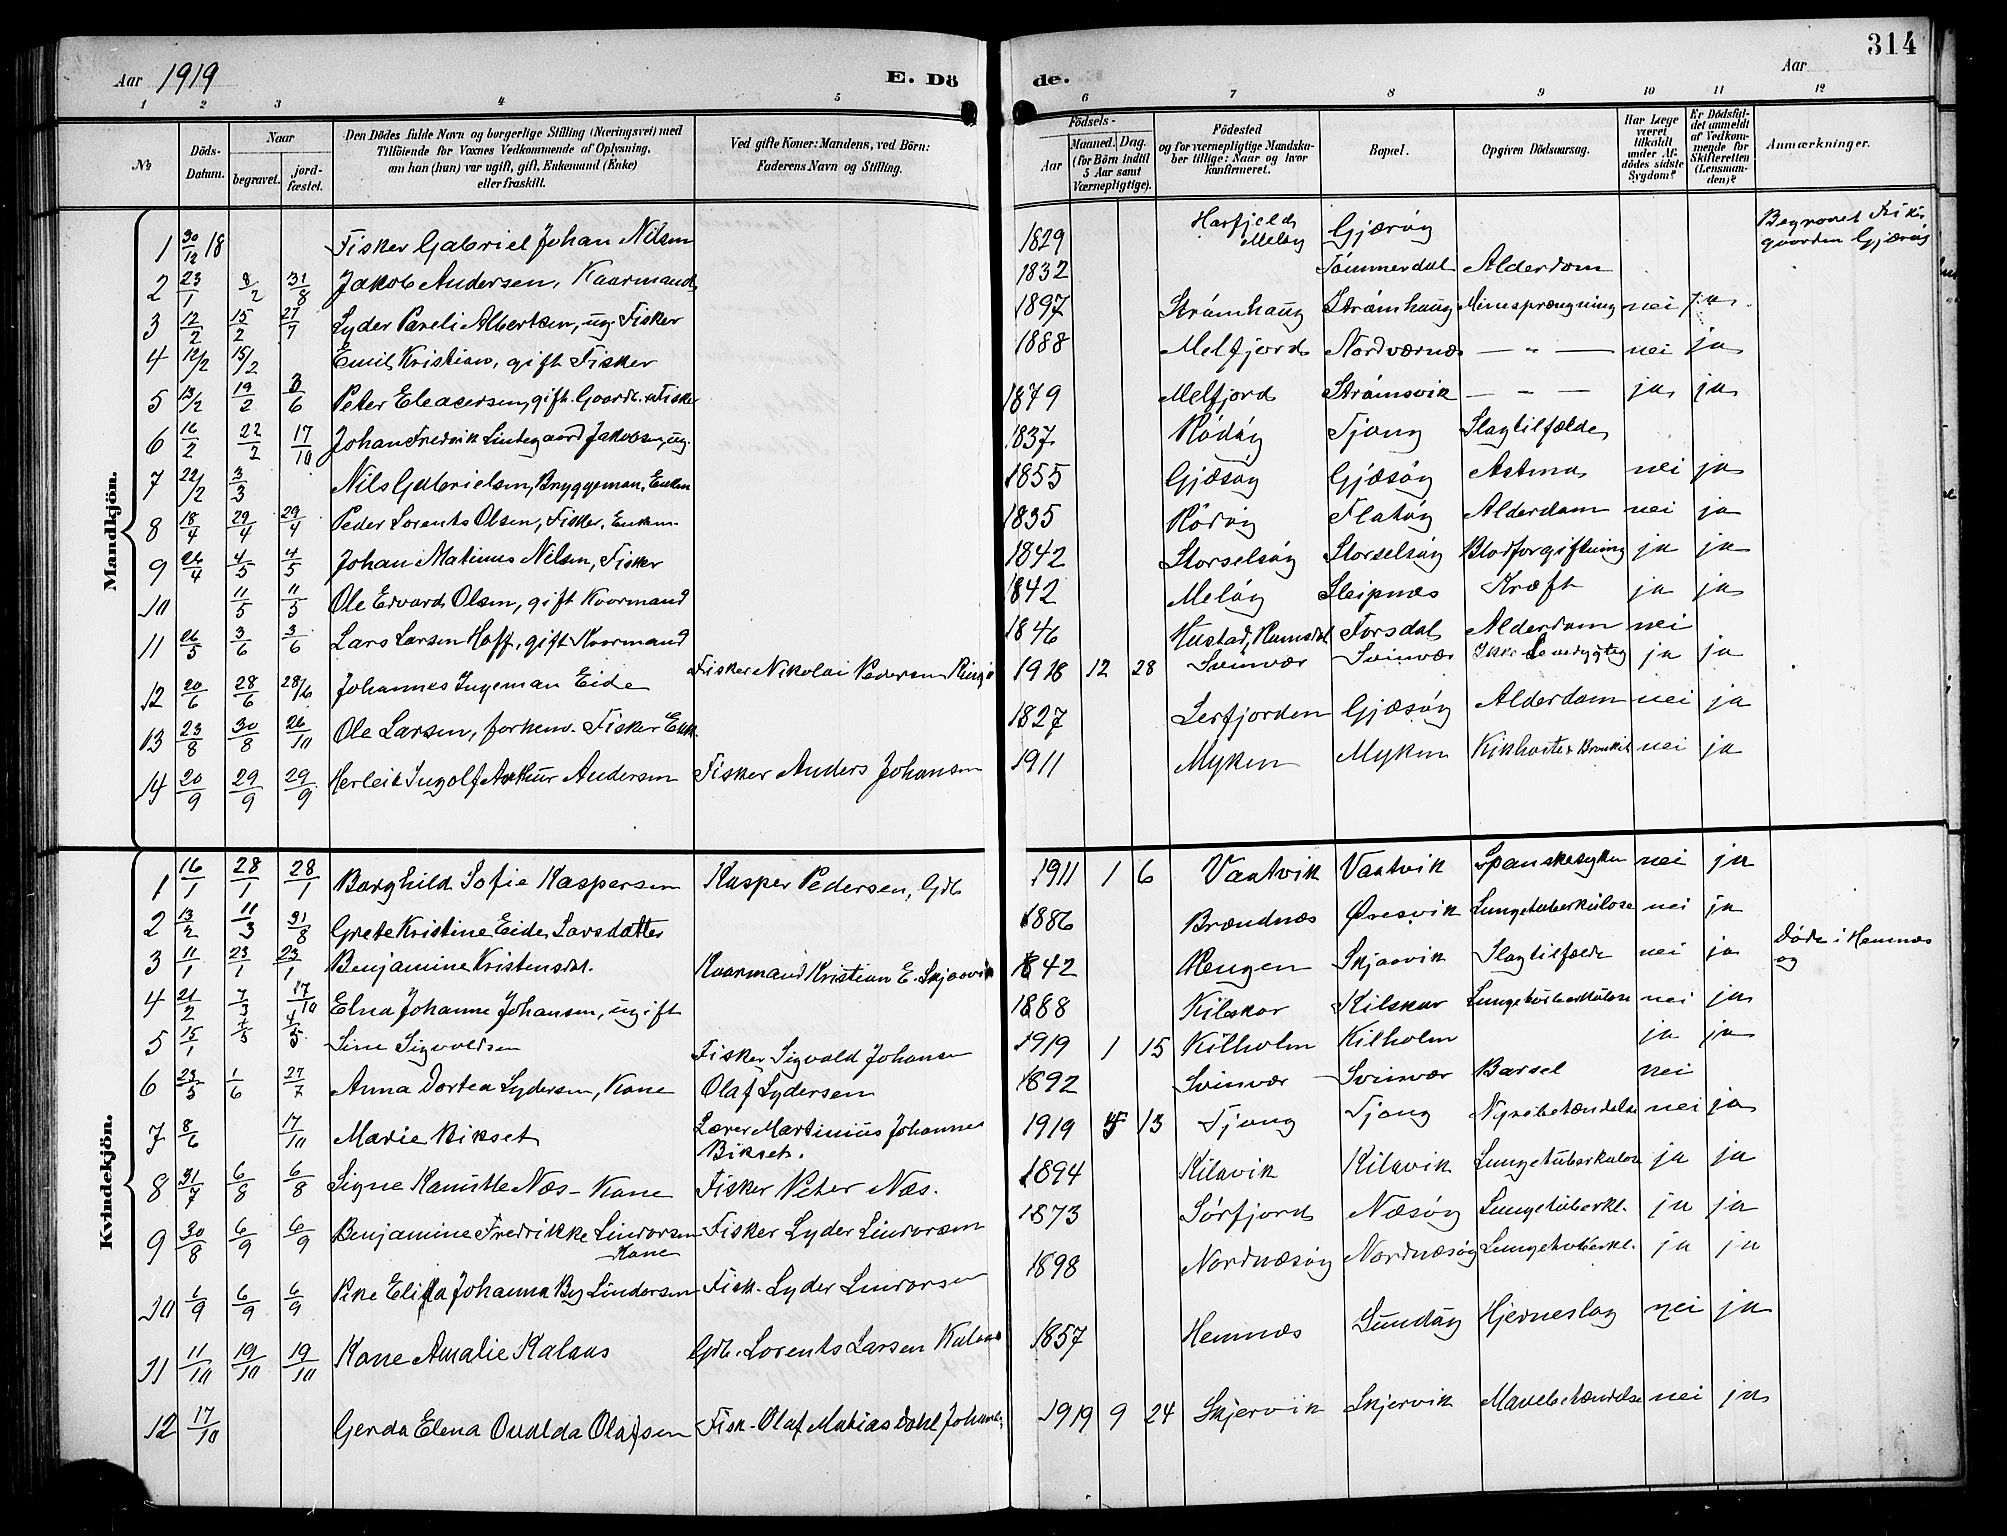 314
Aar 1919 E. Dö de. Aar
1 2 3 4 5 6 7 8 9 10 11 12
No
Döds-Datum.
Naar
begravet.
jord-fæstet.
Den Dödes fulde Navn og borgerlige Stilling (Næringsvei) med
Tilföiende for Voxnes Vedkommende af Oplysning,
om han (hun) var ugift, gift, Enkemand (Enke)
eller fraskilt.
Ved gifte Koner: Mandens, ved Börn:
Faderens Navn og Stilling.
Födsels-
Aar
Maaned. Dag.
(for Börn indtil
5 Aar samt
Værnepligtige).
Födested
og for værnepligtige Mandska-
ber tillige: Naar og hvor
konfirmeret.
Bopæl.
Opgiven Dödsaarsag.
Har Læge
været
tilkaldt
under Af-
dödes sidste
Sygdom?
Er Dödsfal-
det anmeldt
af Vedkom-
mende for
Skifteretten
(Lensman-
den)?
Anmærkninger.
Mandkjön.
1 30/12 18 Fisker Gabriel Johan Nilsen 1829 Meløy Gjærøy Begravet
2 23/1 8/2 31/8 Jakob Andersen, Kaarmand 1832 Tømmerdal Alderdom
3 12/2 15/2 27/7 Lyder Pareli Albertsen, ug. Fisker 1897 Strømhaug Strømhaug Minesprængning nei ja
4 12/2 15/2 Emil Kristian, gift Fisker 1888 Melfjord Nordværnes — " — nei ja
5 13/2 19/2 3/6 Peter Eleasersen, gift. Gaardb. Fisker 1879 Melfjord Strømsvik — " — ja ja
6 16/2 22/2 17/10 Johan Fredrik Lindegaard Jakobsen, ug. 1837 Rødøy Tjong Slagtilfælde
7 22/2 3/3 Nils Gabrielsen, Bryggeman, Enkem 1855 Gjæsøy Gjæsøy Astma nei ja
8 18/4 29/4 29/4 Peder Lorents Olsen, Fisker, Enkem. 1835 Rødøy Flatøy Alderdom nei ja
9 26/4 4/5 4/5 Johan Matinus Nilsen, Fisker 1842 Storselsøy Storselsøy Blodforgiftning ja ja
10 11/5 11/5 Ole Edvard Olsen, gift Kaarmand 1842 Meløy Sleipnæs Kræft ja ja
11 26/5 3/6 3/6 Lars Larsen Hoff, gift Kaarmand 1846 Hustad, Romsdal Forsdal Alderdom nei
12 20/6 28/6 28/6 Johannes Ingeman Eide Fisker Nikolai Pedersen 1918 12 28 Svinvær Svinvær Ikke Levedygtig ja ja
13 23/8 30/8 26/10 Ole Larsen, forhenv. Fisker Enk. 1827 Lerfjorden Gjæsøy Alderdom nei ja
14 20/9 29/9 29/9 Herleik Ingolf Arthur Andersen Fisker Anders Johansen 1911 Myken Myken Kikhoste & Bronkit nei ja
Kvindekjön.
1 16/1 28/1 28/1 Borghild Sofie Kaspersen Kasper Pedersen, Gdb 1911 1 6 Vaatvik Vaatvik Spanskesyken nei ja
2 13/2 11/3 31/8 Grete Kristine Eide Larsdatter 1886 Brændnæs Øresvik Lungetuberkulose nei ja
3 11/1 23/1 23/1 Benjamine Kristensdat. Kaarmand Kristian E. Skjaavik 1842 Rengen Skjaavik Slagtilfælde nei ja Døde i Hemnæs
4 21/2 7/3 17/10 Elna Johanne Johansen, ugift 1888 Kilskar Kilskar Lungetuberkulose nei ja
5 15/1 4/5 4/5 Line Sigvaldsen Fisker Sigvald Johansen 1919 1 15 Kilholm Kilholm ja ja
6 23/5 1/6 27/7 Anna Dortea Lydersen, Kone Olaf Lydersen 1892 Svinvær Svinvær Barsel nei
7 8/6 17/10 Marie Bikset Lærer Martinius Johannes
Bikset. 1919 13 Tjong Tjong Nyrebetændelse nei ja
8 31/7 6/8 6/8 Signe Kamille Næs - Kone Fisker Peter Næs. 1894 Kilavik Kilavik Lungetuberkulose ja ja
9 30/8 6/9 6/9 Benjamine Fredrikke Lindorsen
Kone Fisker Lyder Lindorsen 1873 Sørfjord Næsøy Lungetuberkl. ja ja
10 1/9 6/9 6/9 Pike Elida Johanna By Lindorsen Fisk. Lyder Lindorsen 1898 Nordnæsøy Nordnæsøy Lungetuberkl. ja ja
11 11/10 19/10 19/10 Kone Amalie Kalaas Gdb. Lorents Larsen Kalaas 1857 Hemnæs Sundøy Hjerneslag nei ja
12 17/10 Gerda Elena Ovalda Olafsen Fisk. Olaf Matias Dahl 1919 9 24 Skjervik Skjervik Mavebetændelse nei ja